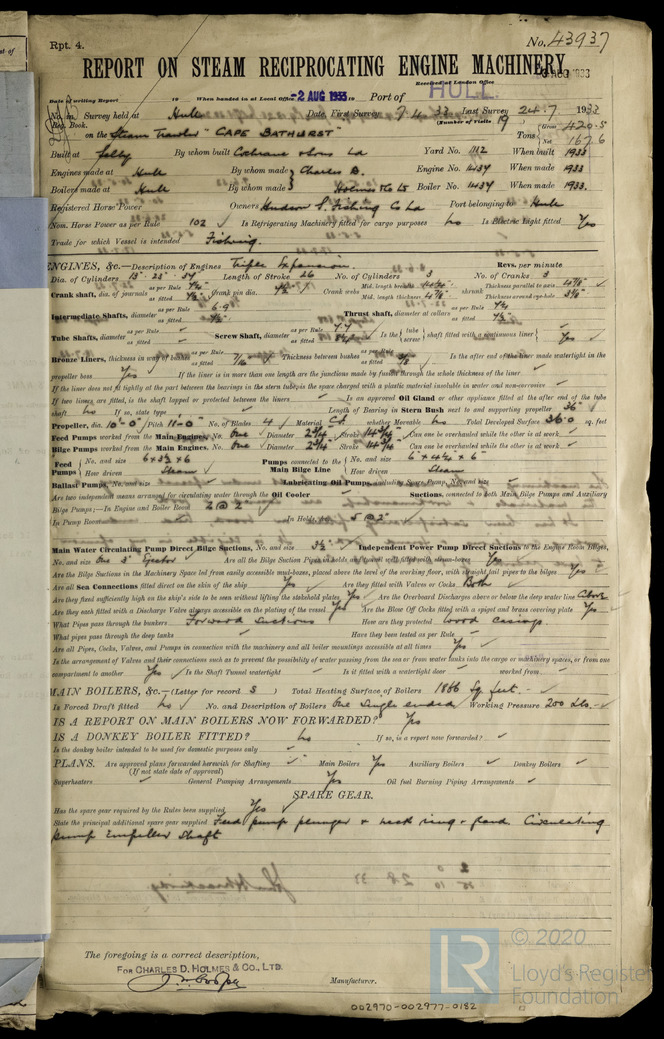 Rpt. 4.
No. 43937
REPORT ON STEAM RECIPROCATING ENGINE MACHINERY.
Received at London Office AUG 1933
Date of writing Report 19 When handed in at Local Office -2 AUG 1933 19 Port of HULL.
No. in Survey held at Hull Date, First Survey 7.4.33 Last Survey 24.7 1933
Reg. Book. (Number of Visits 19)
on the Steam Trawler "CAPE BATHURST" Tons Gross 420.5 Net 167.6
Built at Selby By whom built Cochrane & Sons Ld Yard No. 1112 When built 1933
Engines made at Hull By whom made Charles D. Engine No. 1437 When made 1933
Boilers made at Hull By whom made Holmes & Co Ld Boiler No. 1437 When made 1933.
Registered Horse Power Owners Hudson Fishing Co Ld Port belonging to Hull
Nom. Horse Power as per Rule 102 Is Refrigerating Machinery fitted for cargo purposes No Is Electric Light fitted Yes
Trade for which Vessel is intended Fishing.
ENGINES, &c.—Description of Engines Triple Expansion. Revs. per minute
Dia. of Cylinders 13" - 23" - 37 Length of Stroke 26 No. of Cylinders 3 No. of Cranks 3
Crank shaft, dia. of journals as per Rule as fitted Crank pin dia. Crank webs Mid. length breadth Mid. length thickness shrunk Thickness parallel to axis Thickness around eye-hole
Intermediate Shafts, diameter as per Rule as fitted Thrust shaft, diameter at collars as per Rule as fitted
Tube Shafts, diameter as per Rule as fitted Screw Shaft, diameter as per Rule as fitted Is the tube screw shaft fitted with a continuous liner Yes
Bronze Liners, thickness in way of bushes as per Rule as fitted 7/16 Thickness between bushes as per Rule as fitted Is the after end of the liner made watertight in the
propeller boss Yes If the liner is in more than one length are the junctions made by fusion through the whole thickness of the liner
If the liner does not fit tightly at the part between the bearings in the stern tube, is the space charged with a plastic material insoluble in water and non-corrosive
If two liners are fitted, is the shaft lapped or protected between the liners Is an approved Oil Gland or other appliance fitted at the after end of the tube
shaft No If so, state type Length of Bearing in Stern Bush next to and supporting propeller 36"
Propeller, dia. 10'-0" Pitch 11'-0" No. of Blades 4 Material C.I. whether Moveable No Total Developed Surface 36.0 sq. feet
Feed Pumps worked from the Main Engines, No. One Diameter 2 3/4" Stroke Can one be overhauled while the other is at work
Bilge Pumps worked from the Main Engines, No. One Diameter 2 3/4" Stroke Can one be overhauled while the other is at work
Feed Pumps No. and size 6 x 3 1/2 x 6 How driven Steam Pumps connected to the Main Bilge Line No. and size How driven Steam
Ballast Pumps, No. and size Lubricating Oil Pumps, including Spare Pump, No. and size
Are two independent means arranged for circulating water through the Oil Cooler Suctions, connected to both Main Bilge Pumps and Auxiliary
Bilge Pumps;—In Engine and Boiler Room 2 @ 2"
In Pump Room In Holds, &c. 5 @ 2"
Main Water Circulating Pump Direct Bilge Suctions, No. and size 3 1/2" Independent Power Pump Direct Suctions to the Engine Room Bilges,
No. and size One 3" Ejector Are all the Bilge Suction Pipes in holds and tunnel well fitted with strum-boxes Yes
Are the Bilge Suctions in the Machinery Space led from easily accessible mud-boxes, placed above the level of the working floor, with straight tail pipes to the bilges Yes
Are all Sea Connections fitted direct on the skin of the ship Yes Are they fitted with Valves or Cocks Both
Are they fixed sufficiently high on the ship's side to be seen without lifting the stokehold plates Yes Are the Overboard Discharges above or below the deep water line Above
Are they each fitted with a Discharge Valve always accessible on the plating of the vessel Yes Are the Blow Off Cocks fitted with a spigot and brass covering plate Yes
What Pipes pass through the bunkers Forward Suctions How are they protected Wood casings.
What pipes pass through the deep tanks Have they been tested as per Rule
Are all Pipes, Cocks, Valves, and Pumps in connection with the machinery and all boiler mountings accessible at all times Yes
Is the arrangement of Valves and their connections such as to prevent the possibility of water passing from the sea or from water tanks into the cargo or machinery spaces, or from one
compartment to another Yes Is the Shaft Tunnel watertight Is it fitted with a watertight door worked from
MAIN BOILERS, &c.—(Letter for record S) Total Heating Surface of Boilers 1866 Sq. feet.
Is Forced Draft fitted No No. and Description of Boilers One Single ended Working Pressure 200 Lbs.
IS A REPORT ON MAIN BOILERS NOW FORWARDED? Yes
IS A DONKEY BOILER FITTED? No If so, is a report now forwarded?
Is the donkey boiler intended to be used for domestic purposes only
PLANS. Are approved plans forwarded herewith for Shafting Main Boilers Yes Auxiliary Boilers Donkey Boilers
(If not state date of approval)
Superheaters General Pumping Arrangements Yes Oil fuel Burning Piping Arrangements
SPARE GEAR.
Has the spare gear required by the Rules been supplied Yes
State the principal additional spare gear supplied Feed pump plunger & neck ring & gland. Circulating
pump impeller shaft
The foregoing is a correct description,
FOR CHARLES D. HOLMES & CO. LTD.
Manufacturer.
002970-002977-0182
LR © 2020
Lloyd's Register
Foundation